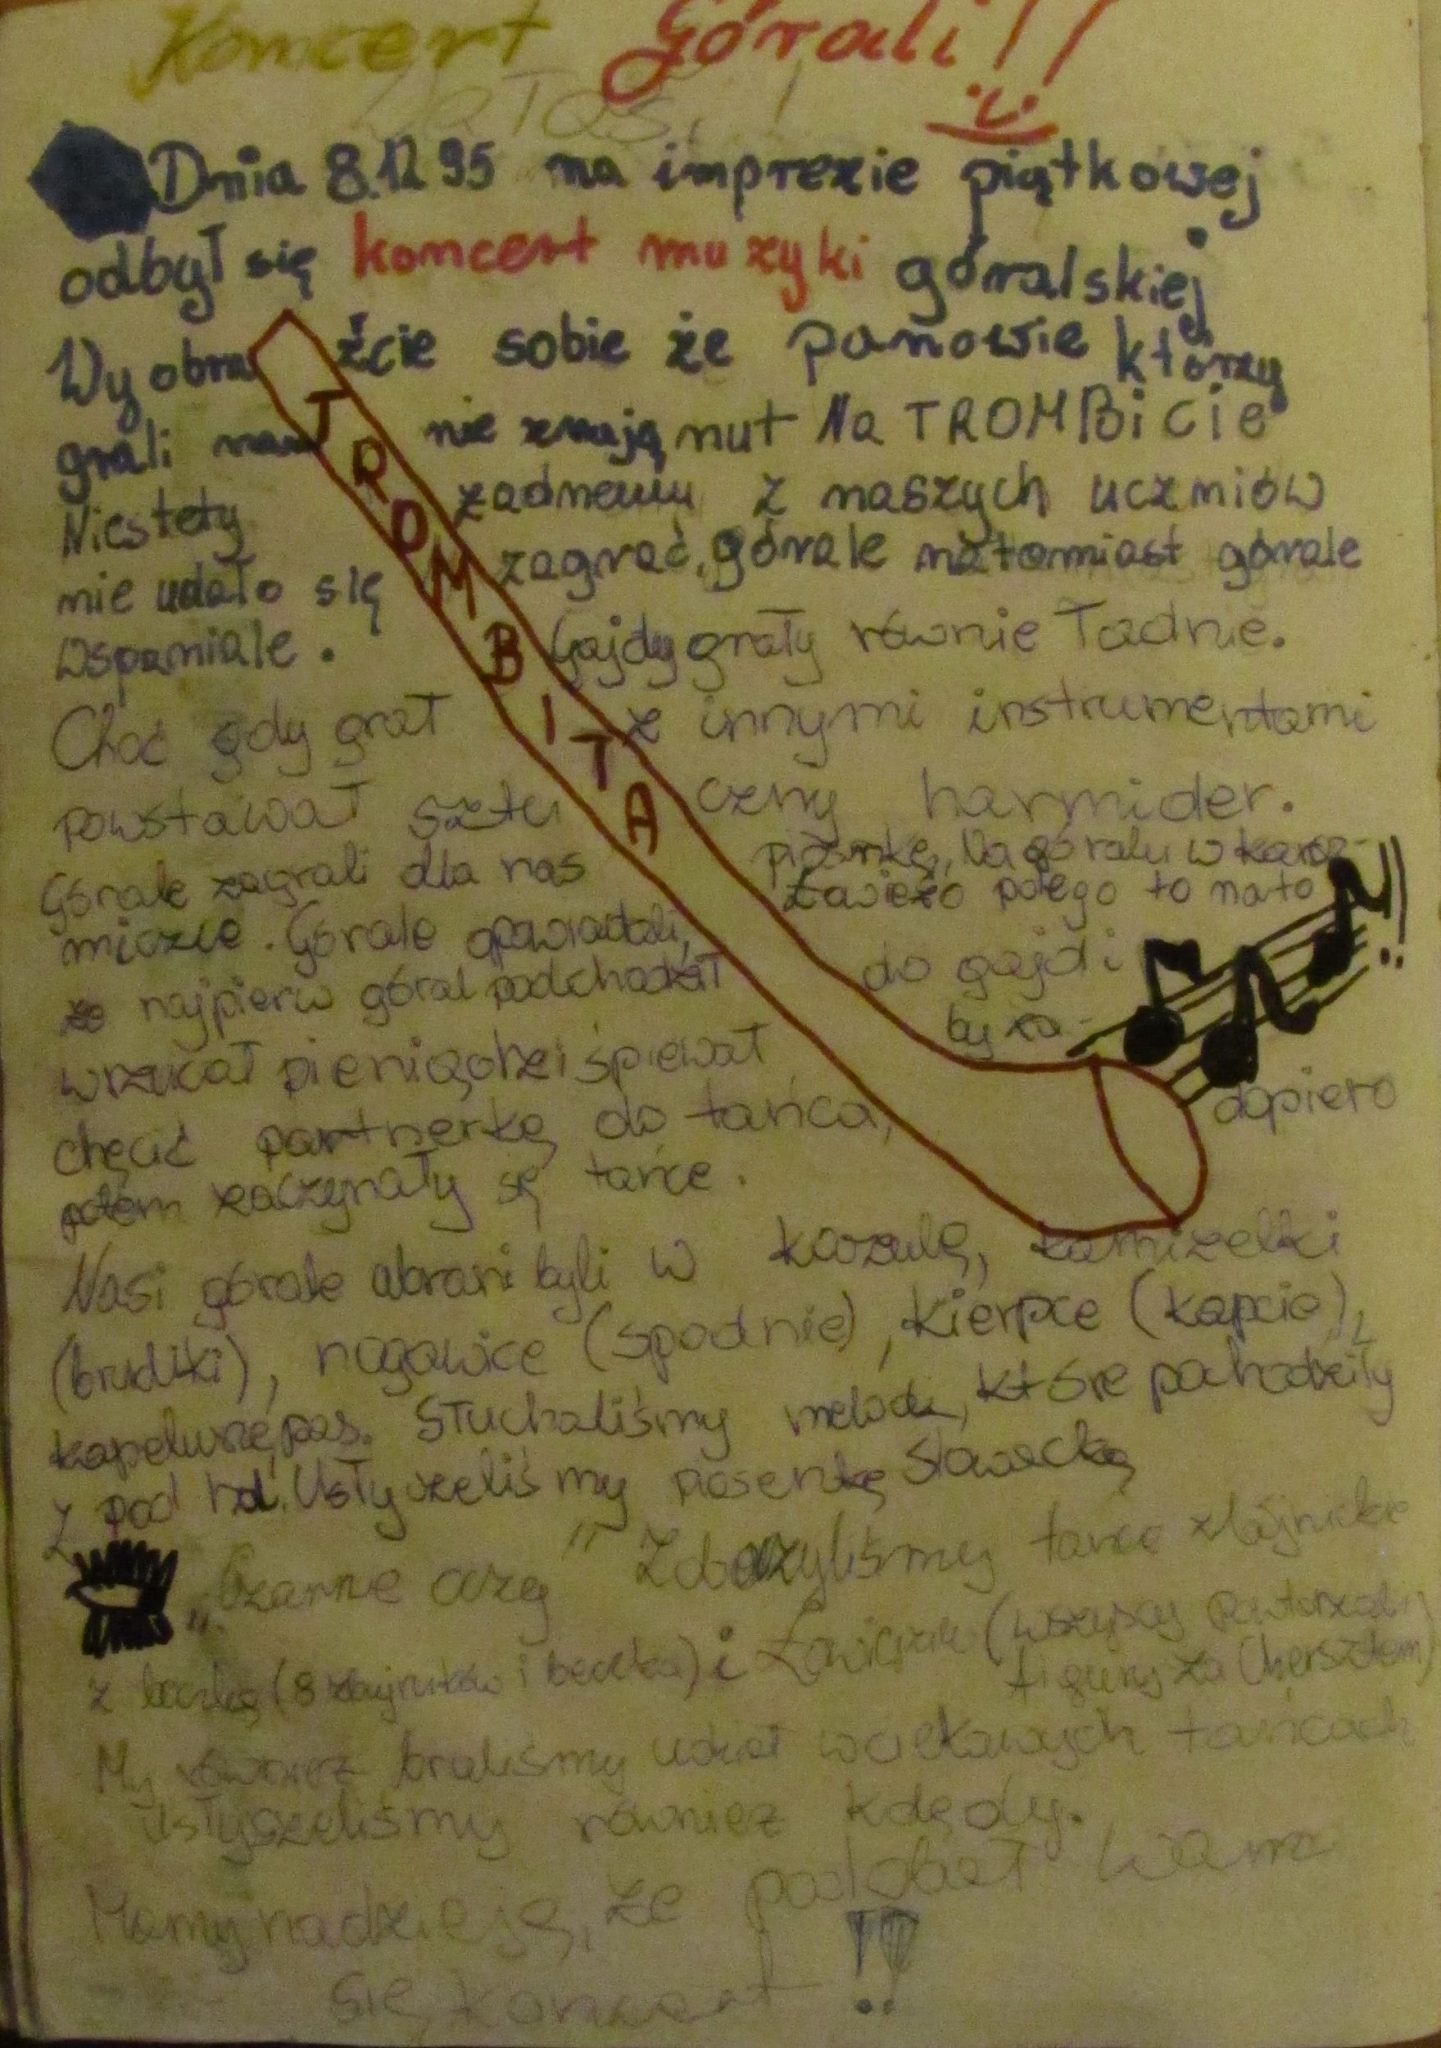 Koncert Górali!!
Dnia 8.12 95 na imprezie piątkowej
odbył się koncert muzyki góralskiej
Wyobraźcie sobie że panowie którzy
grali nam nie znają nut Na TROMBiCie
Niestety żadnemu z naszych uczniów
nie udało się zagrać, górale natomiast górale
wspaniale. Gajdy grały równie ładnie.
Choć gdy grał z innymi instrumentami
powstawał sztuczny harmider.
Górale zagrali dla nas piosnkę, Na góralu w karcz-
miczce. Górale opowiadali,
że najpierw góral podchodził do gajdi
wrzucał pieniądze i śpiewał by za-
chęcić partnerkę do tańca, dopiero
potem zaczynały się tańce.
Nasi górale ubrani byli w koszulę, kamizelki
(brucliki), nogawice (spodnie), kierpce (kapcie),
kapelusze, pas. Słuchaliśmy melodi, które pochodziły
z pod hal. Usłyszeliśmy piosenkę słowacką
"Czarne oczy" Zobaczyliśmy tańce zbójnickie
z beczką (8 zbójników i beczka) i (wszyscy powtarzali
figury za Chersztem)
My również braliśmy udział w ciekawych tańcach
Usłyszeliśmy również kolędy.
Mamy nadzieję, że podobał wam
się koncert !!
TROMBITA